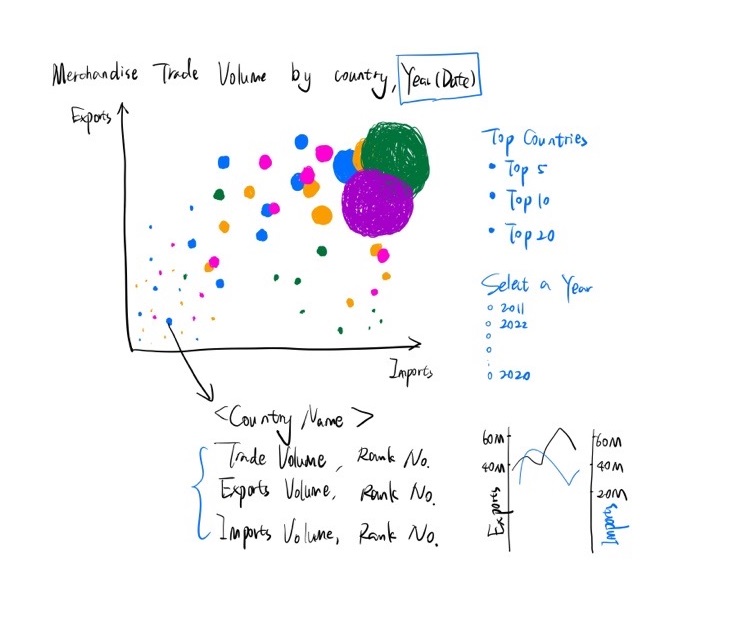 Merchandise Trade Volume by country, Year (Date)
Exports
Imports
Top Countries
• Top 5
• Top 10
• Top 20
Select a Year
2011
2022
2020
<Country Name>
Trade Volume, Rank No.
Exports Volume, Rank No.
Imports Volume, Rank No.
60M
40M
Exports
60M
40M
20M
Imports